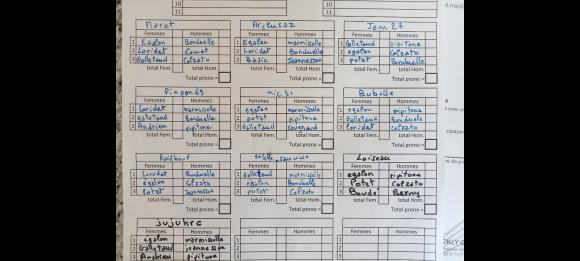 10
11
11
Marat
Femmes Hommes
1 Egalon Bonduelle
2 Loridat Comot
3 Galletaud Colzato
total Fem. total Hom.
Total prono =
Acclusaz
Femmes Hommes
1 Egalon marmisolle
2 Loridat Bonduelle
3 Basic Jeannesson
total Fem. total Hom.
Total prono =
Jam 27
Femmes Hommes
1 Galletaud pipitone
2 egalon Colzato
3 potet Bonduelle
total Fem. total Hom.
Total prono =
Pinpon 69
Femmes Hommes
1 loridat marmisolle
2 galletaud Bonduelle
3 Andrien pipitone
total Fem. total Hom.
Total prono =
mic 31
Femmes Hommes
1 egalon marmisolle
2 potet pipitone
3 Galletaud
total Fem. total Hom.
Total prono =
Bubolle
Femmes Hommes
1 egalon pipitone
2 Galletaud Bonduelle
3 loridat colzato
total Fem. total Hom.
Total prono =
Femmes Hommes
1 Loridat Bonduelle
2 egalon Colzato
3 potet Jeannesson
total Fem. total Hom.
Total prono =
Femmes Hommes
1 Galletaud marmisolle
2 egalon Bonduelle
3 potet Colzato
total Fem. total Hom.
Total prono =
Loiseau
Femmes Hommes
1 egalon pipitone
2 Potet Colzato
3 Boudé Berny
total Fem. total Hom.
Total prono =
Jujuhrc
Femmes Hommes
1 egalon marmisolle
2 Galletaud jeannesson
3 Andrien pipitone
Femmes Hommes
1
2
3
Femmes Hommes
1
2
3